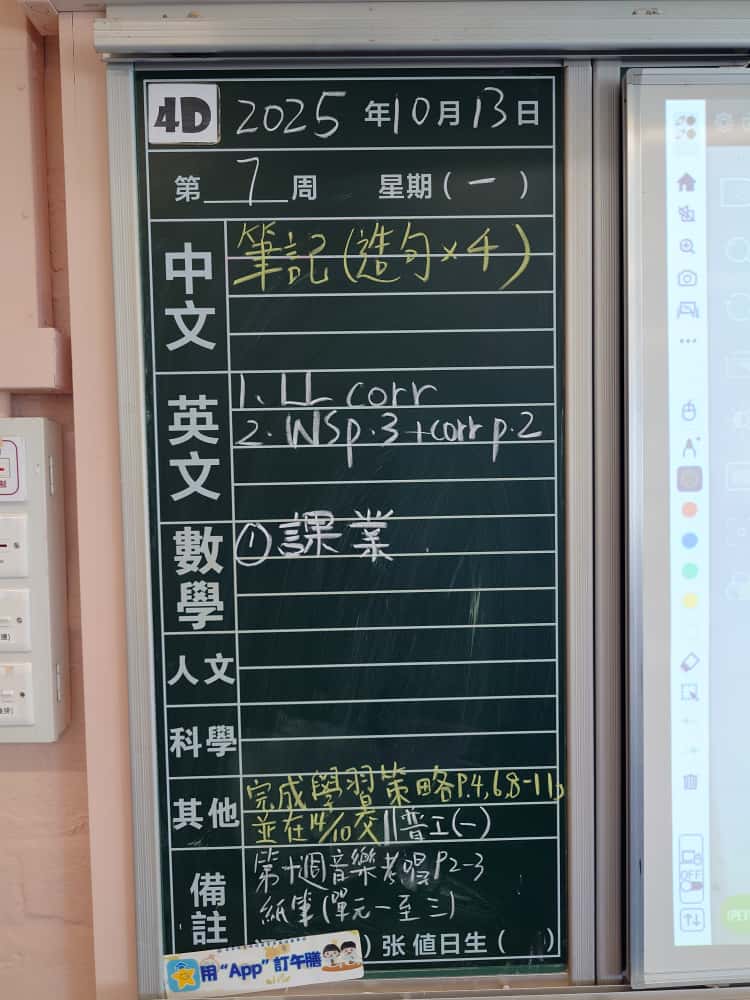 4D 2025年10月13日
第 7 周 星期(一)
中文 筆記(造句×4)
英文 1. LL corr
2. WS p.3 + corr p.2
數學 ①課業
人文
科學
其他 完成學習策略P.4,6,8-11
並在14/10交 普工(一)
備註 第十週音樂考 P2-3
紙筆(單元一至三)
) 张 值日生( )
用"App"訂午膳
OFF